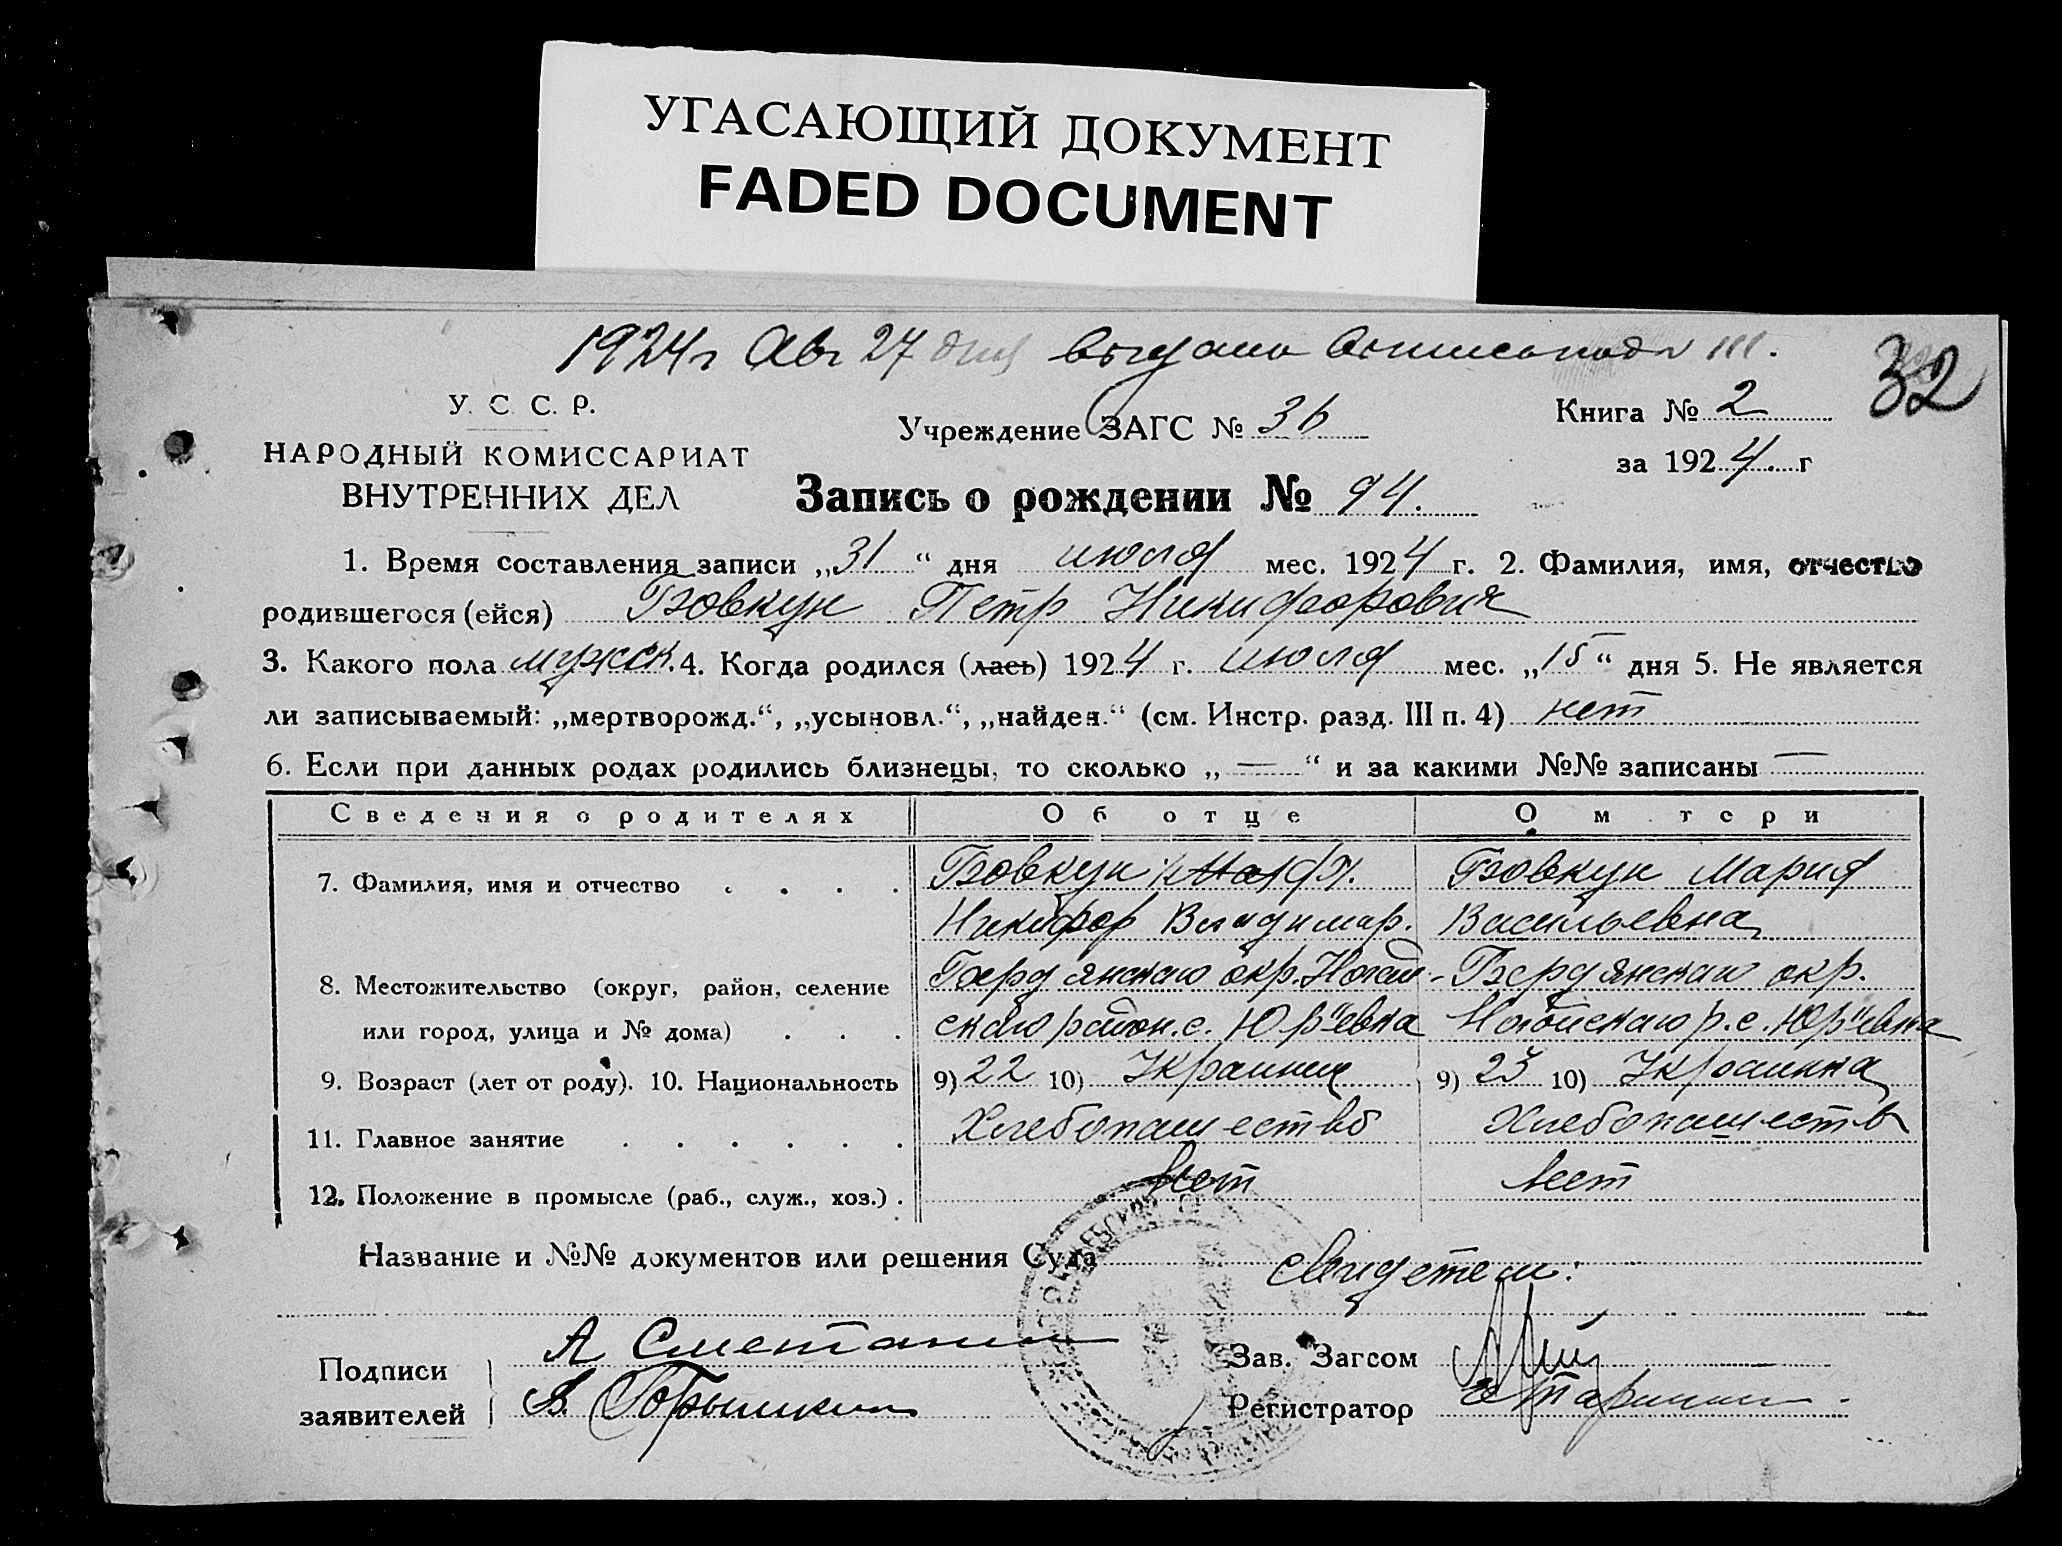 УГАСАЮЩИЙ ДОКУМЕНТ
FADED DOCUMENT
1924 г Авг 27 дня выдана выпись под №
32
У. С. С. Р.
НАРОДНЫЙ КОМИССАРИАТ
ВНУТРЕННИХ ДЕЛ
Учреждение ЗАГС № 36
Книга № 2
за 1924. г
Запись о рождении № 94.
1. Время составления записи „31“ дня июля мес. 1924 г. 2. Фамилия, имя, отчество
родившегося (ейся) Бовкун Петр Никифорович
3. Какого пола мужск. 4. Когда родился (лась) 1924 г. июля мес. „15“ дня 5. Не является
ли записываемый: „мертворожд.“, „усыновл.“, „найден.“ (см. Инстр. разд. III п. 4) нет
6. Если при данных родах родились близнецы, то сколько „ — “ и за какими №№ записаны —
Сведения о родителях Об отце О м тери
7. Фамилия, имя и отчество . . . . Бовкун Бовкун Мария
Никифор Владимир. Васильевна
8. Местожительство (округ, район, селение Бердянскаго окр. Ногай- Бердянскаго окр.
или город, улица и № дома) . . . скаго район. с. Юр"евка Ногайскаго р. с. Юр"евка
9. Возраст (лет от роду). 10. Национальность 9) 22 10) Украинец 9) 23 10) Украинка
11. Главное занятие . . . . . . Хлебопашество Хлебопашеств
12. Положение в промысле (раб., служ., хоз.) . Нет Нет
Название и №№ документов или решения Суда
свидетели:
Подписи
заявителей
А Сметанин
Зав. Загсом
Регистратор